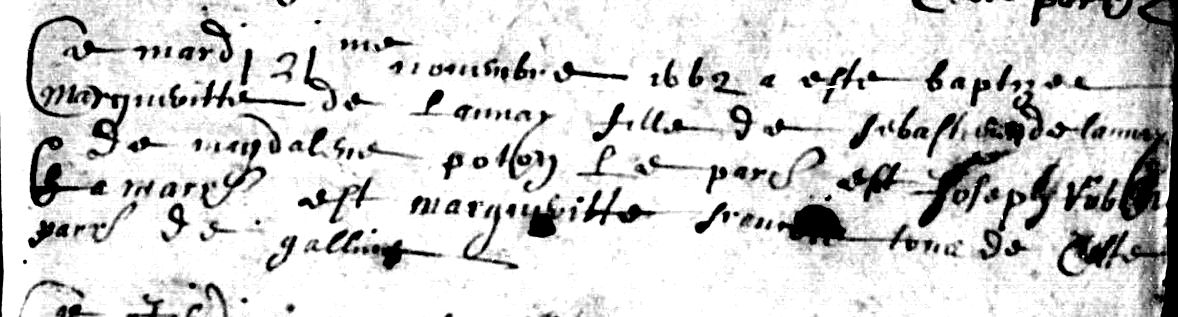 Ce mardi 21 me novembre 1662 a este baptizee
Margueritte de Launay fille de sebastien de launay
& de magdalene poton Le parr est Joseph
La marr est Margueritte tous de Ceste
parr de gallin